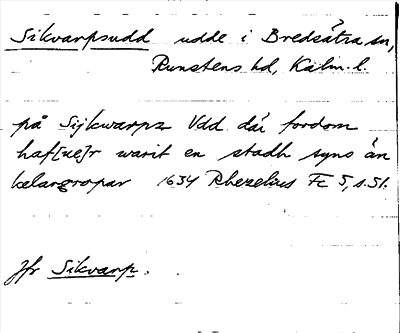 Sikvarpsudd udde i Bredsätra sn,
Runstens hd, Kalm. l.
på Sijkwarpz Vdd där fordom
haf[ue]r warit en stadh syns än
kelargropar 1634 Rhezelius Fc 5, s. 51.
Jfr Sikvarp.